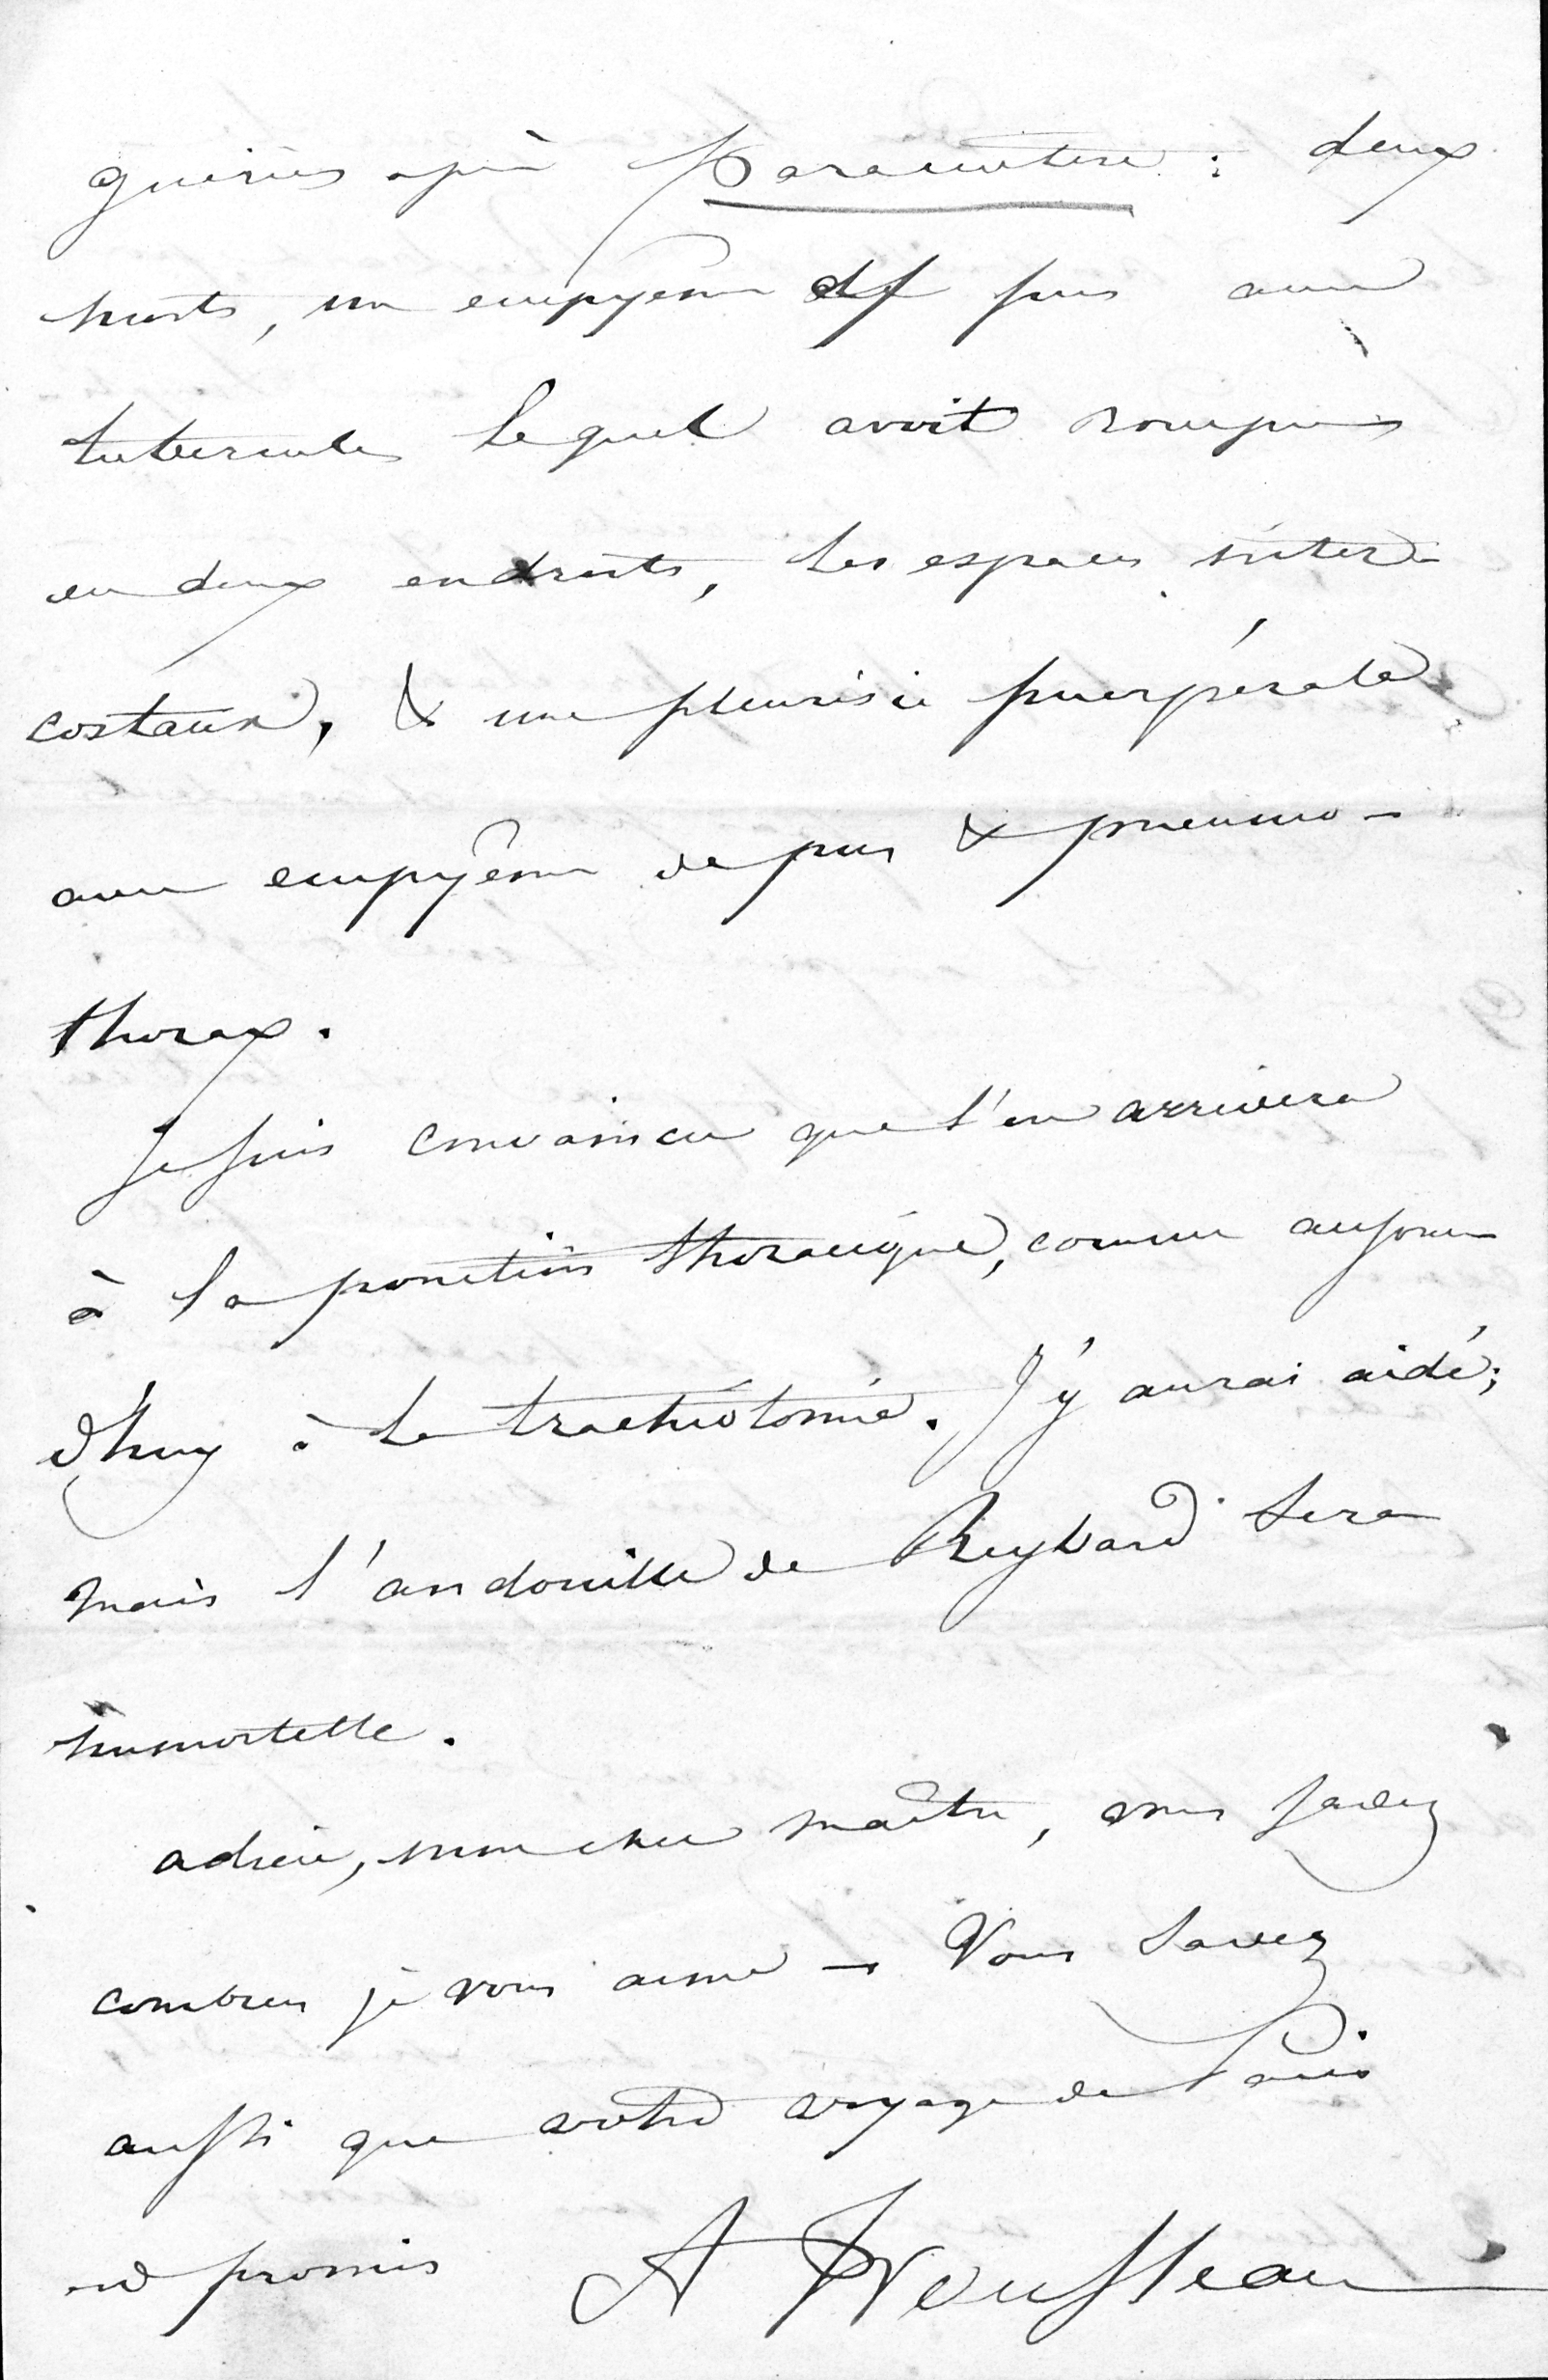 guéries après paracentèse : deux
morts, un empyème de pus avec
tubercules lequel avoit rompu
en deux endroits, les espaces inter-
costaux, & une pleurésie puerpérale
avec empyème de pus & pneumo-
thorax.
Je suis convaincu que l'on arrivera
à la ponction thoracique, comme aujour
d'huy à la trachéotomie. J'y aurai aidé;
mais l'andouille de Reybard sera
immortelle.
adieu, mon cher maître, vous savez
combien je vous aime – Vous savez
aussi que votre voyage de Paris
est promis A Trousseau